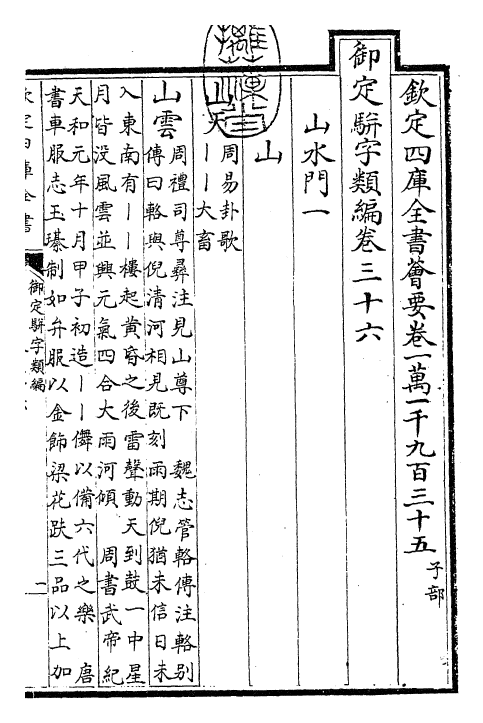 欽定四庫全書薈要卷一萬一千九百三十五 子部
御定駢字類編卷三十六
山水門一
山
山天 周易卦歌
｜｜大畜
山雲 周禮司尊彝注見山尊下 魏志管輅傳注輅别
傳曰輅與倪清河相見既刻雨期倪猶未信日未
入東南有｜｜樓起黄昏之後雷聲動天到鼓一中星
月皆没風雲並興元氣四合大雨河傾 周書武帝紀
天和元年十月甲子初造｜｜儛以備六代之樂 唐
書車服志玉璂制如弁服以金飾梁花趺三品以上加
欽定四庫全書
御定駢字類編
一